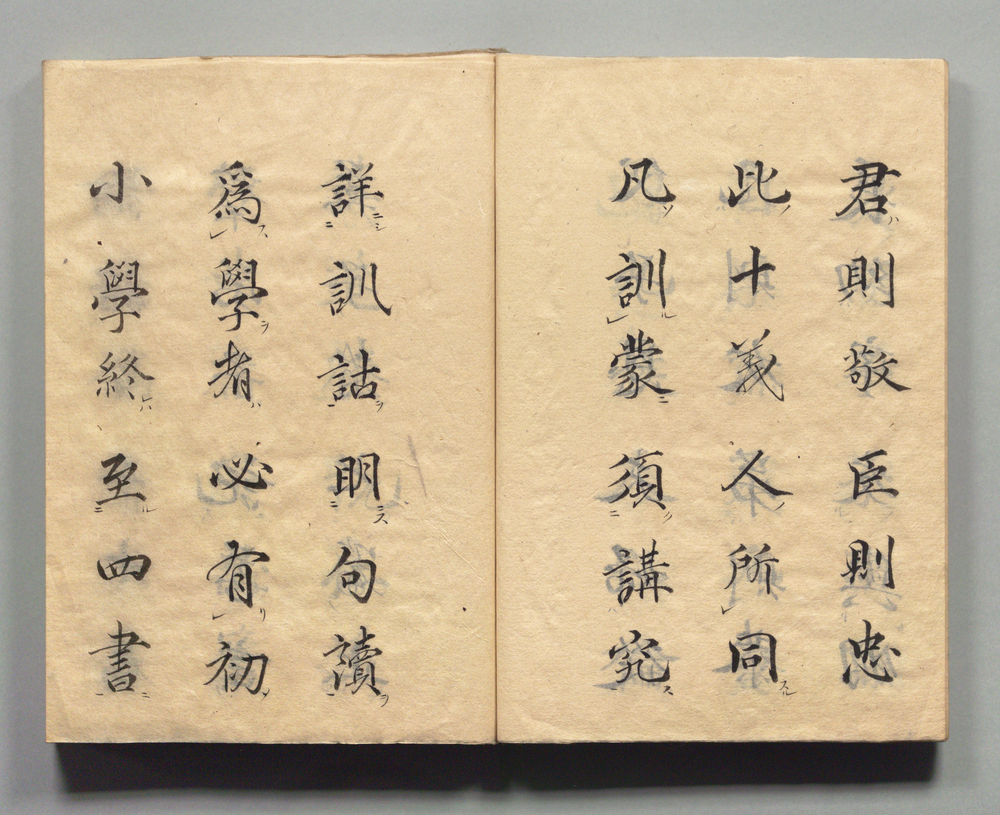 君則敬臣則忠
此十義人所同
凡訓蒙須講究
詳訓詁明句讀
爲學者必有初
小學終至四書